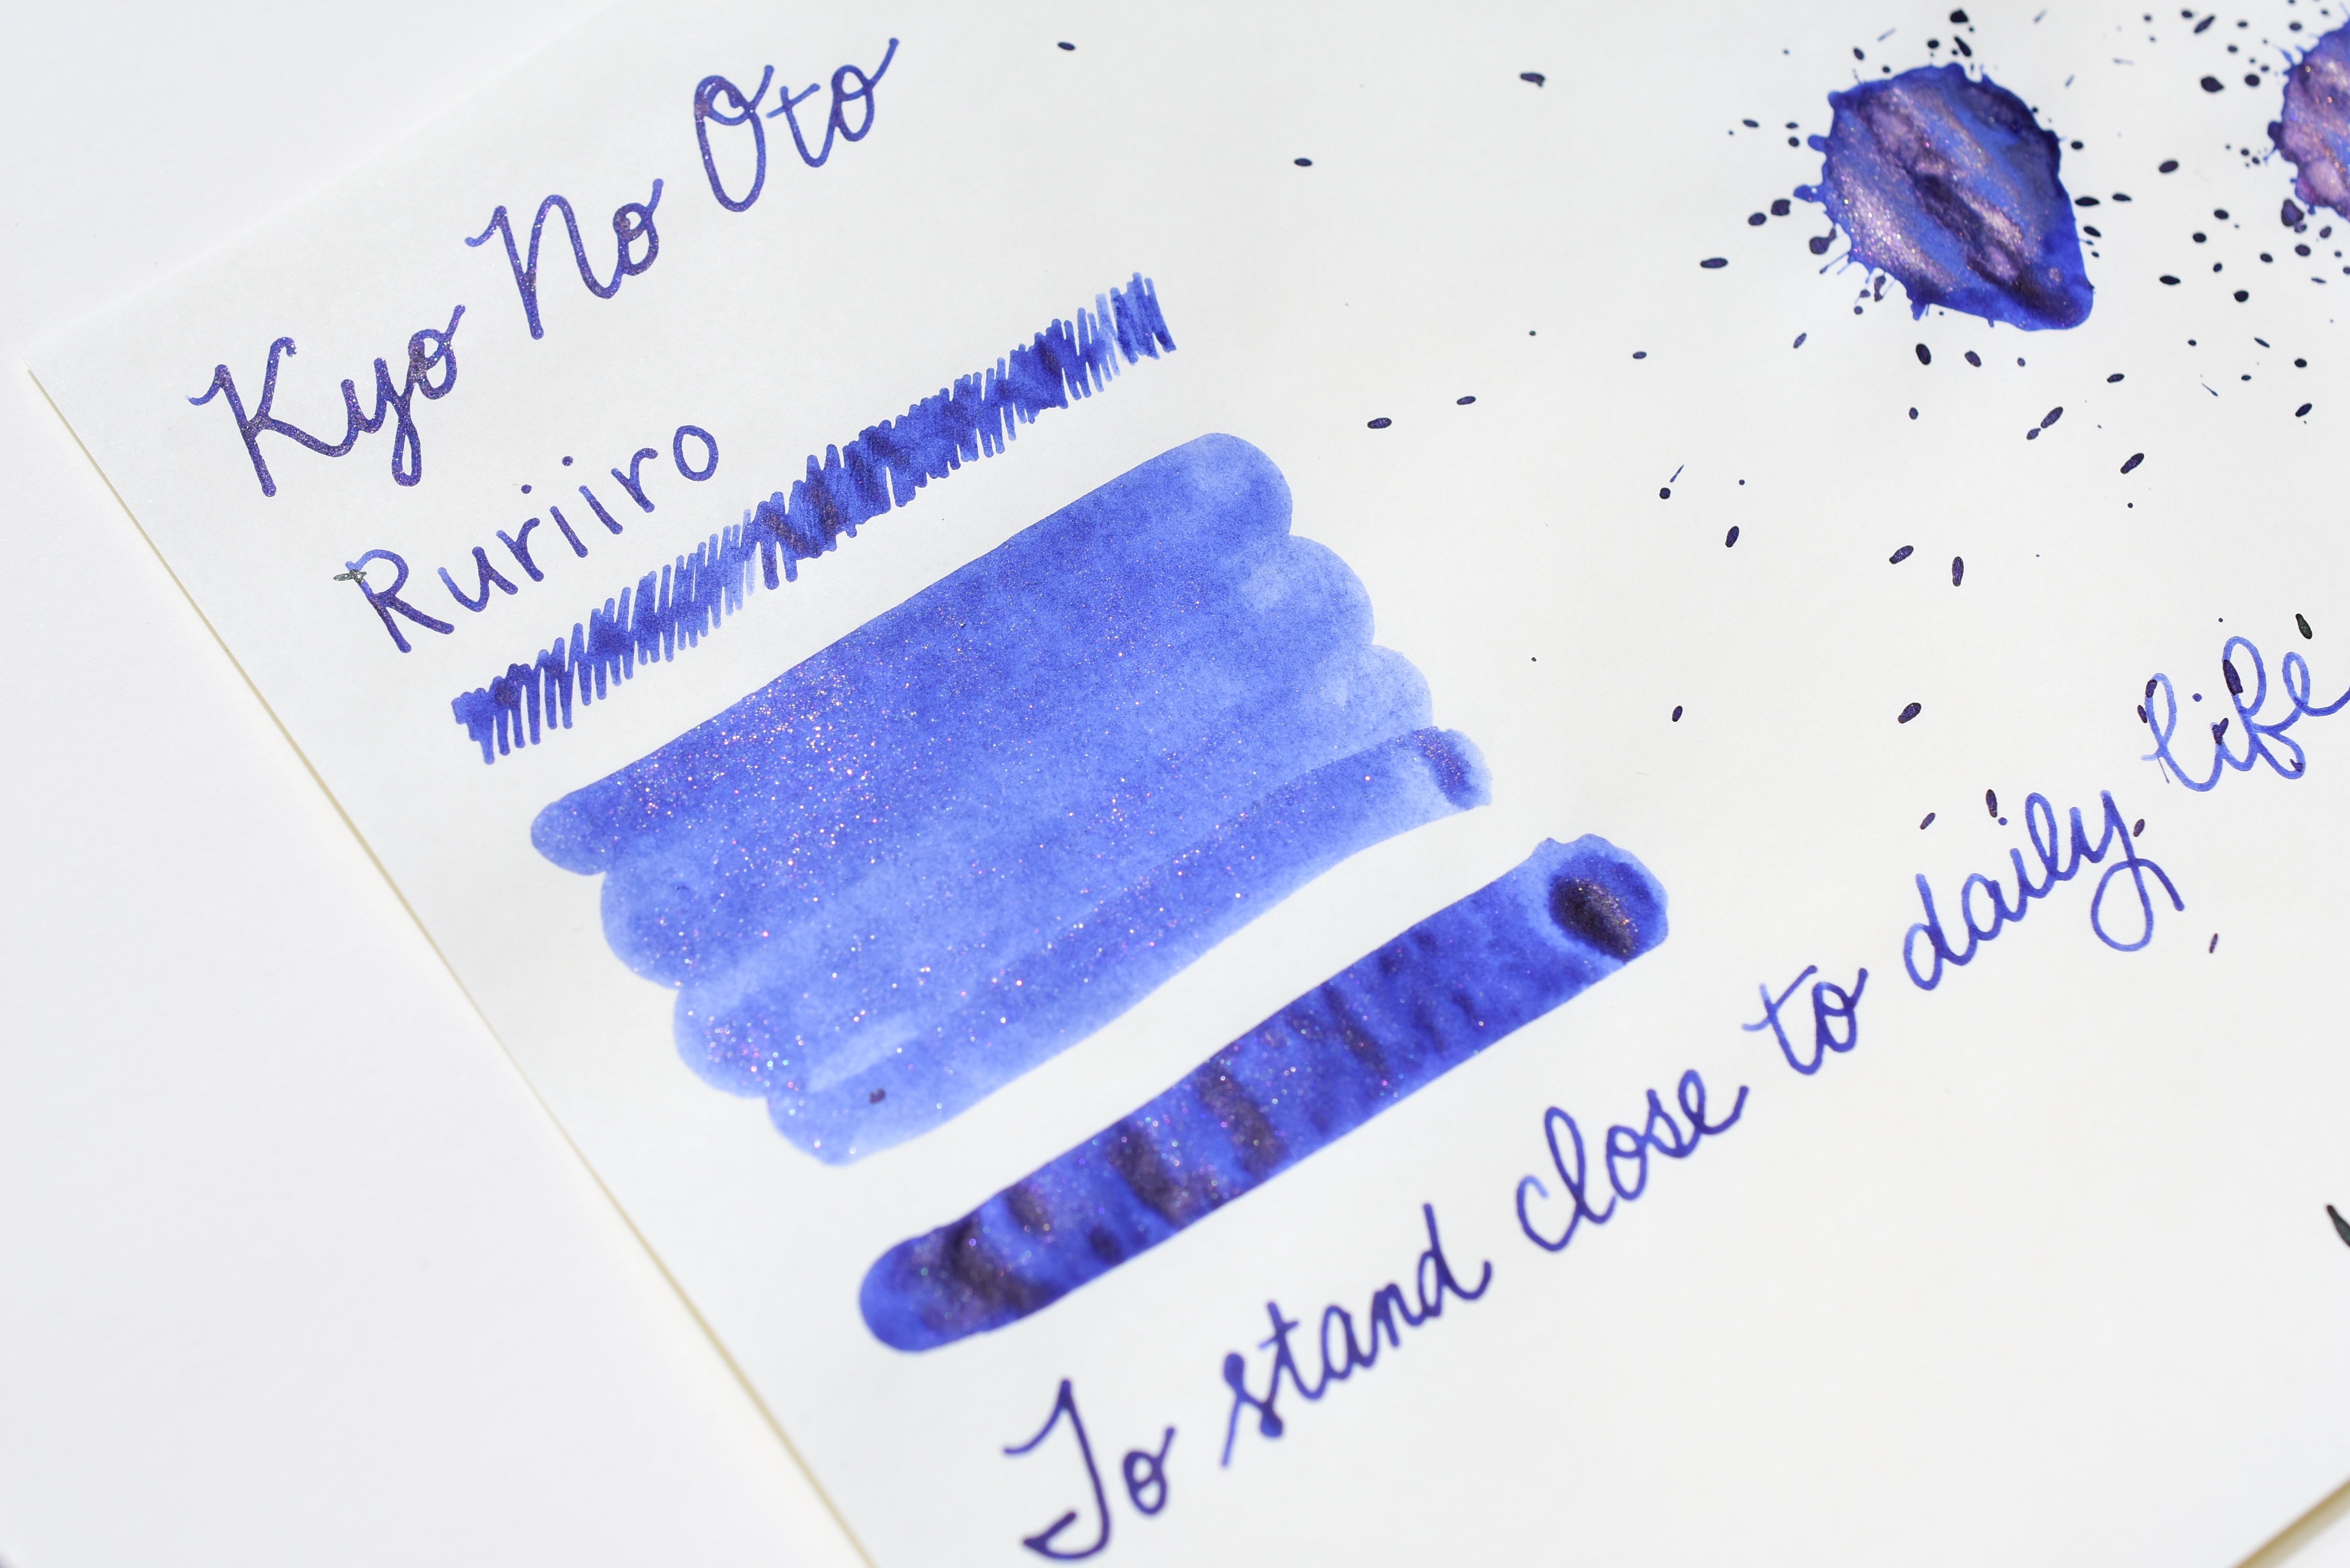 Kyo No Oto
Ruriiro
To stand close to daily life